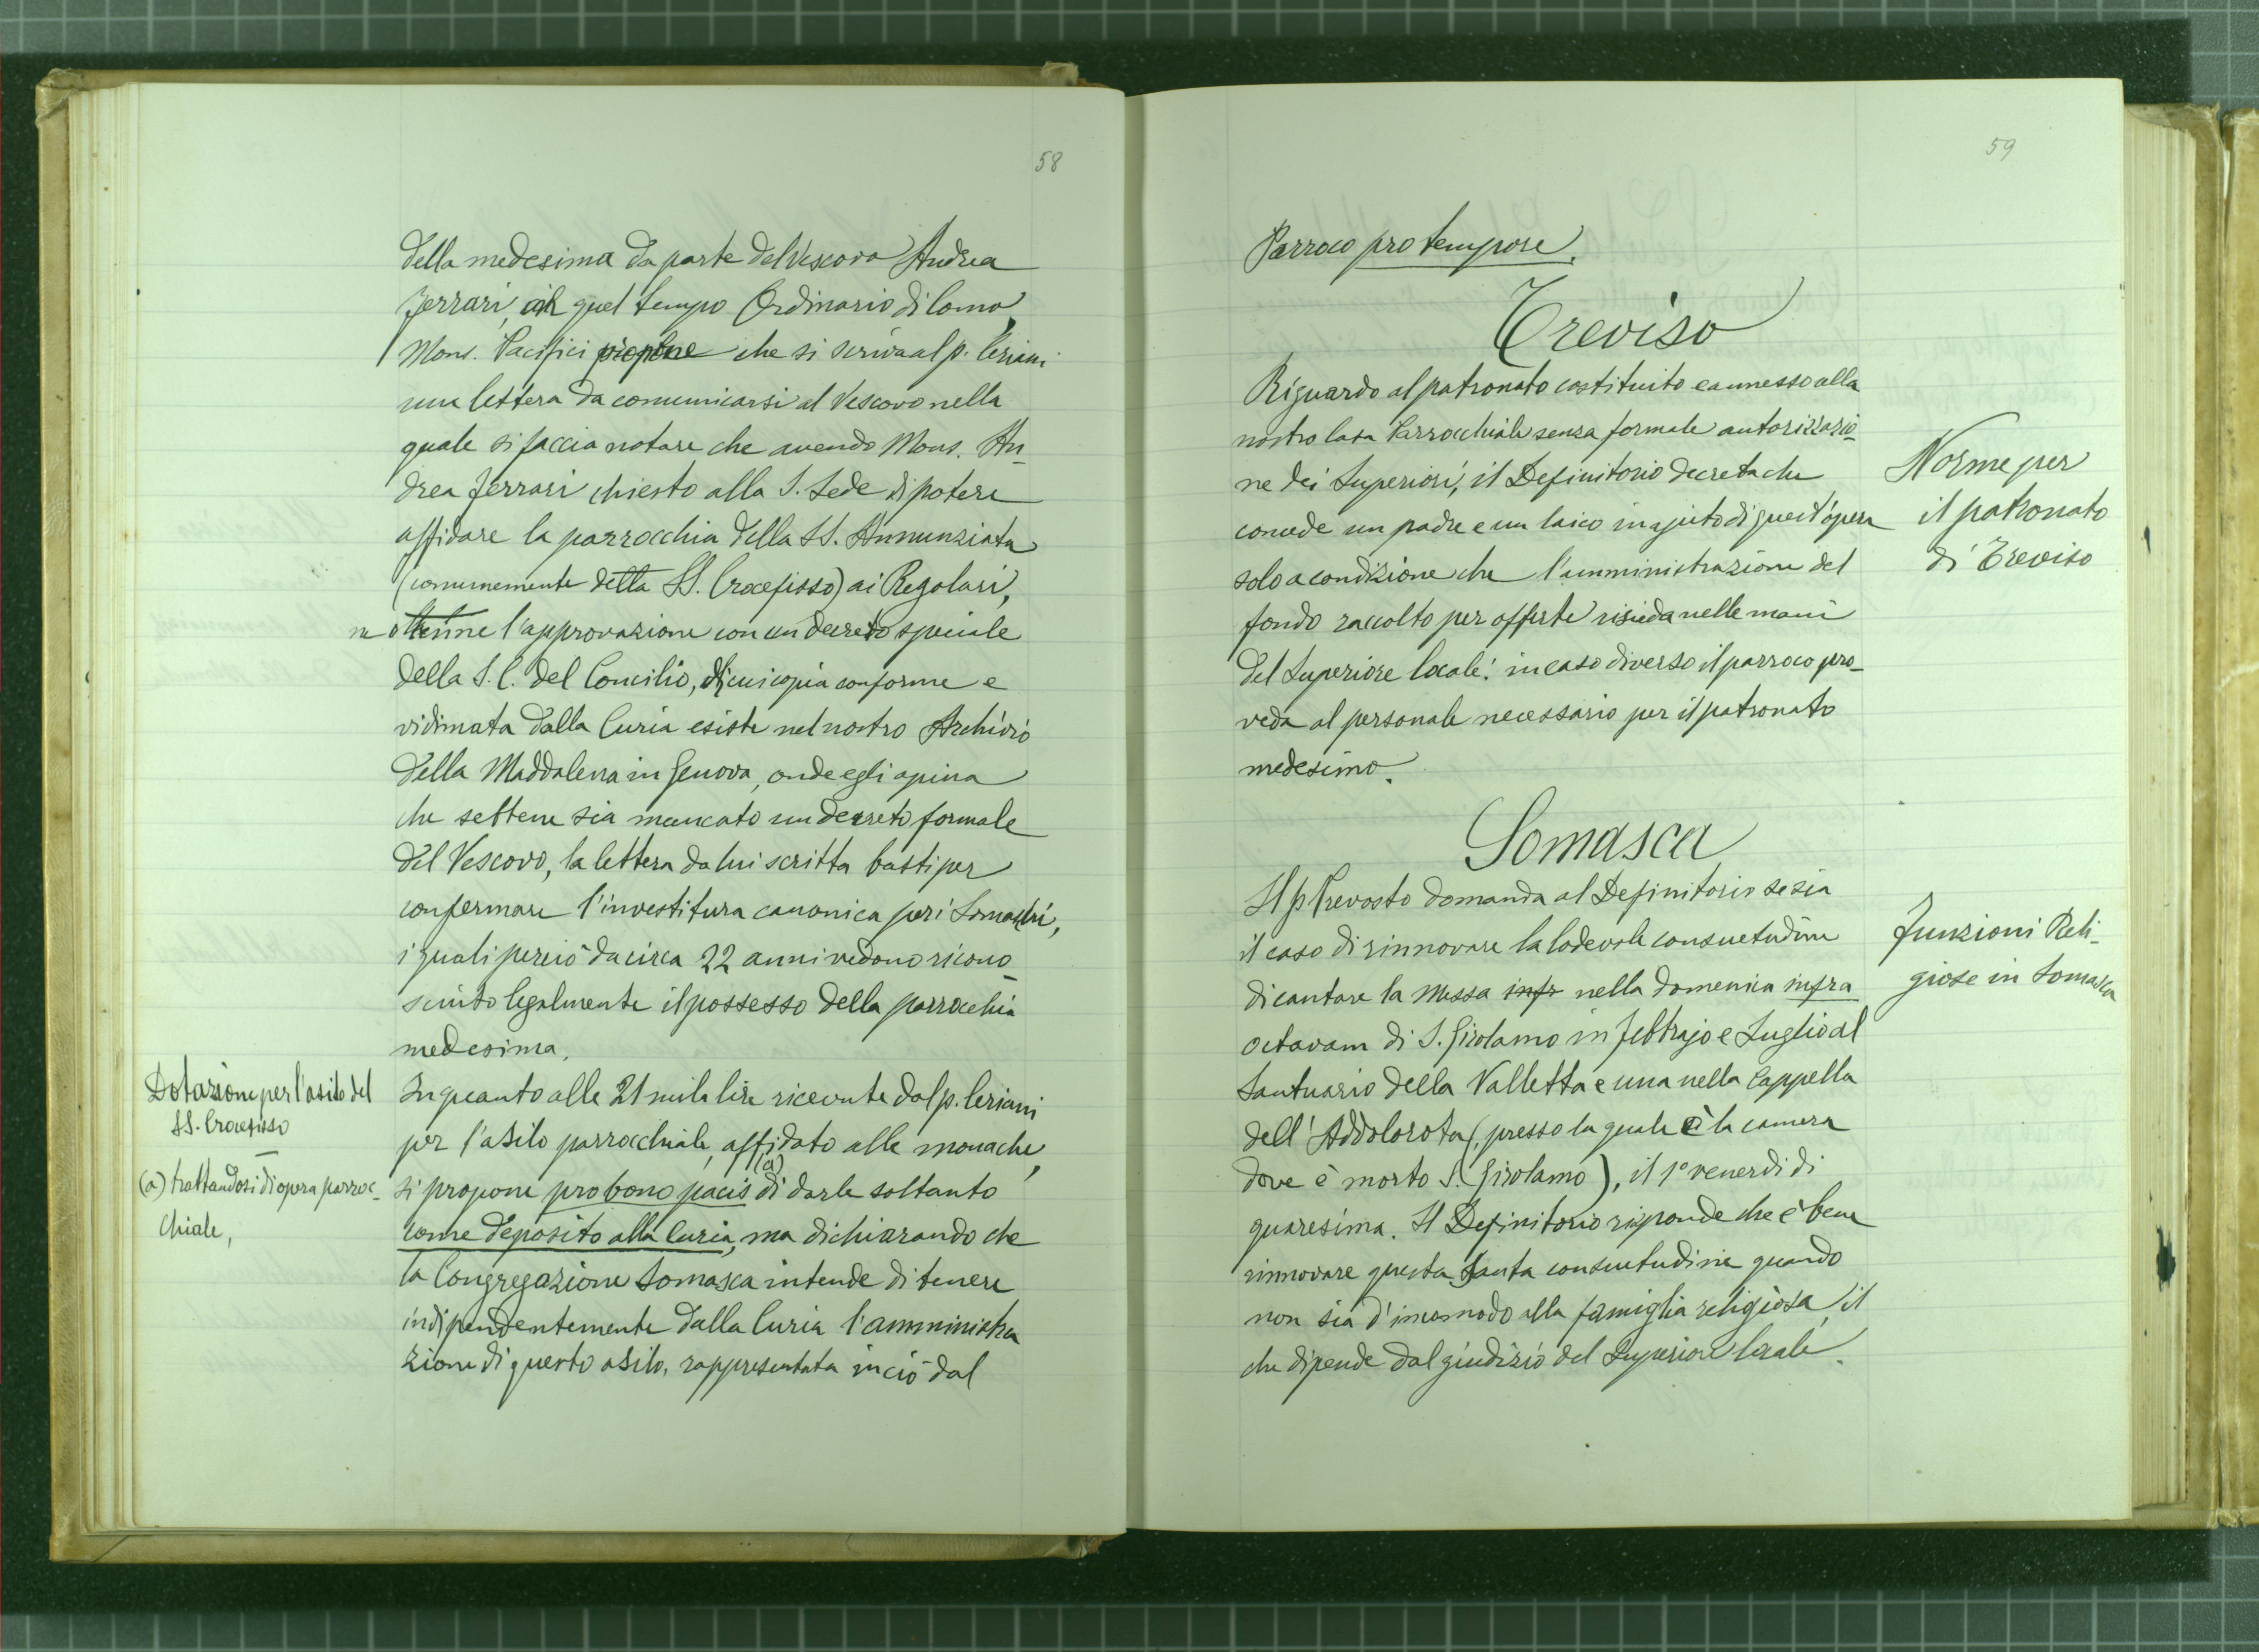 58
della medesima da parte del Vescovo Andrea
Ferrari, in quel tempo Ordinario di Como,
Mons. Pacifici propone che si scriva al p. Ceriani
una lettera da comunicarsi al Vescovo nella
quale si faccia notare che avendo Mons. An-
drea Ferrari chiesto alla S. Sede di potere
affidare la parrocchia della SS. Annunziata
(comunemente detta SS. Crocefisso) ai Regolari,
ne ottenne l'approvazione con un decreto speciale
della S. C. del Concilio, di cui copia conforme e
vidimata dalla Curia esiste nel nostro Archivio
della Maddalena in Genova, onde egli opina
che sebbene sia mancato un decreto formale
del Vescovo, la lettera da lui scritta basti per
confermare l'investitura canonica per i Somaschi,
i quali perciò da circa 22 anni vedono ricono-
sciuto legalmente il possesso della parrocchia
medesima.
Dotazione per l'asilo del
SS. Crocefisso
In quanto alle 21 mila lire ricevute dal p. Ceriani
per l'asilo parrocchiale, affidato alle monache,
(a) trattandosi di opera parroc-
chiale,
si propone pro bono pacis (a) di darle soltanto
come deposito alla Curia, ma dichiarando che
la Congregazione Somasca intende di tenere
indipendentemente dalla Curia l'amministra
zione di questo asilo, rappresentata in ciò dal
59
Parroco pro tempore.
Treviso
Riguardo al patronato costituito e annesso alla
nostra Casa Parrocchiale senza formale autorizzazio-
ne dei Superiori, il Definitorio decreta che
concede un padre e un laico in ajuto di quest'opera
solo a condizione che l'amministrazione del
fondo raccolto per offerte risieda nelle mani
del Superiore locale: in caso diverso il parroco pro-
veda al personale necessario per il patronato
medesimo.
Norme per
il patronato
di Treviso
Somasca
Il p. Prevosto domanda al Definitorio se sia
il caso di rinnovare la lodevole consuetudine
di cantare la Messa infr nella domenica infra
octavam di S. Girolamo in Febbrajo e Luglio al
Santuario della Valletta e una nella Cappella
dell'Addolorota (presso la quale è la camera
dove è morto S. Girolamo), il 1º venerdì di
quaresima. Il Definitorio risponde che è bene
rinnovare questa santa consuetudine quando
non sia d'incomodo alla famiglia religiosa, il
che dipende dal giudizio del Superiore locale.
Funzioni Reli-
giose in Somasca